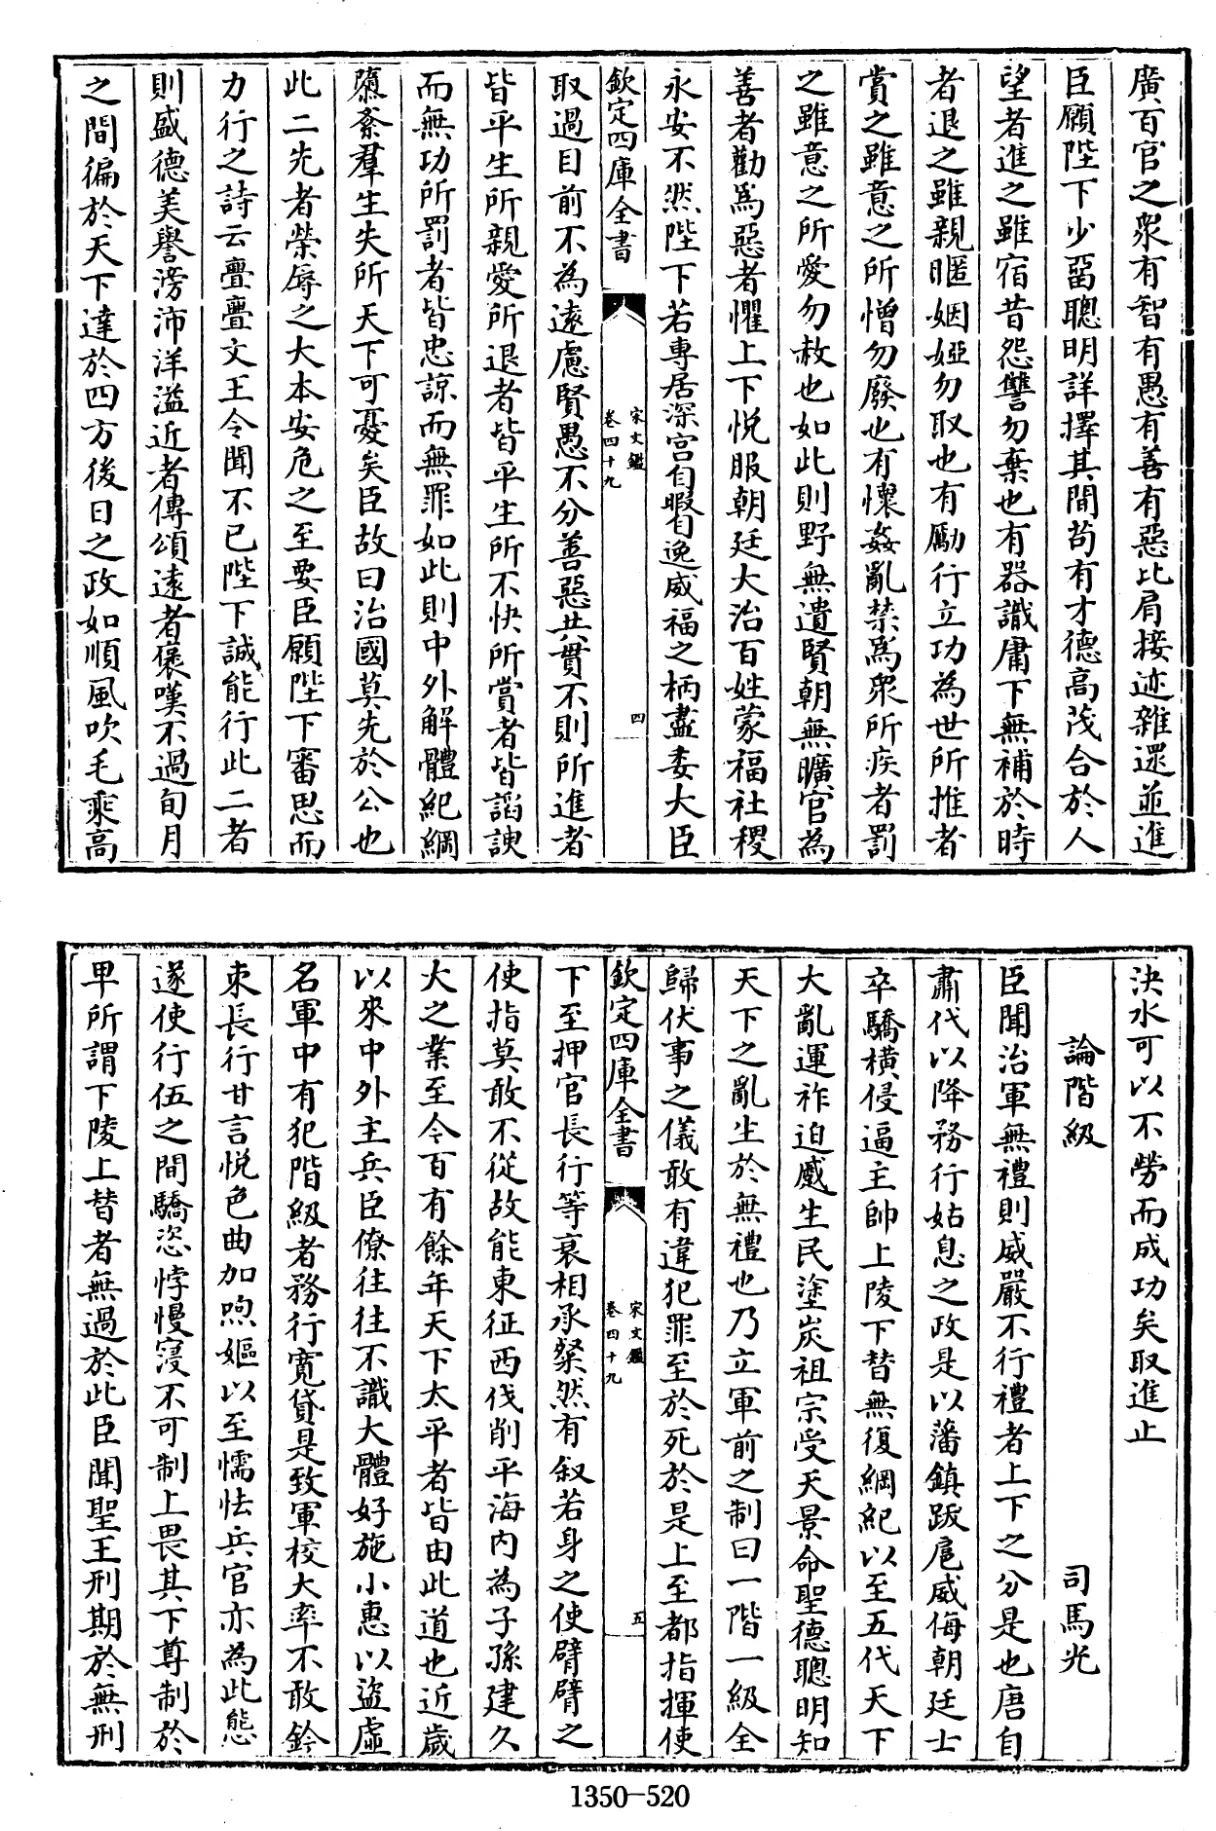 廣百官之衆有智有愚有善有惡比肩接迹雜還並進
臣願陛下少畱聰明詳擇其間苟有才德高茂合於人
望者進之雖宿昔怨讐勿棄也有器識庸下無補於時
者退之雖親暱姻婭勿取也有勵行立功為世所推者
賞之雖意之所憎勿廢也有懷姦亂禁爲衆所疾者罰
之雖意之所愛勿赦也如此則野無遺賢朝無曠官為
善者勸爲惡者懼上下悅服朝廷大治百姓蒙福社稷
永安不然陛下若專居深宮自暇自逸威福之柄盡委大臣
欽定四庫全書
宋文鑑
卷四十九
四
取過目前不為遠慮賢愚不分善惡共貫不則所進者
皆平生所親愛所退者皆平生所不快所賞者皆謟諛
而無功所罰者皆忠諒而無罪如此則中外解體紀綱
隳紊羣生失所天下可憂矣臣故曰治國莫先於公也
此二先者榮辱之大本安危之至要臣願陛下審思而
力行之詩云亹亹文王令聞不已陛下誠能行此二者
則盛德美譽滂沛洋溢近者傳頌遠者褒嘆不過旬月
之間徧於天下達於四方後日之政如順風吹毛乘高
決水可以不勞而成功矣取進止
論階級
司馬光
臣聞治軍無禮則威嚴不行禮者上下之分是也唐自
肅代以降務行姑息之政是以藩鎮跋扈威侮朝廷士
卒驕橫侵逼主帥上陵下替無復綱紀以至五代天下
大亂運祚迫蹙生民塗炭祖宗受天景命聖德聰明知
天下之亂生於無禮也乃立軍前之制曰一階一級全
歸伏事之儀敢有違犯罪至於死於是上至都指揮使
欽定四庫全書
宋文鑑
卷四十九
五
下至押官長行等衰相承粲然有叙若身之使臂臂之
使指莫敢不從故能東征西伐削平海内為子孫建久
大之業至今百有餘年天下太平者皆由此道也近歲
以來中外主兵臣僚往往不識大體好施小惠以盜虛
名軍中有犯階級者務行寬貸是致軍校大率不敢鈐
束長行甘言悅色曲加呴嫗以至懦怯兵官亦為此態
遂使行伍之間驕恣悖慢寖不可制上畏其下尊制於
卑所謂下陵上替者無過於此臣聞聖王刑期於無刑
1350-520